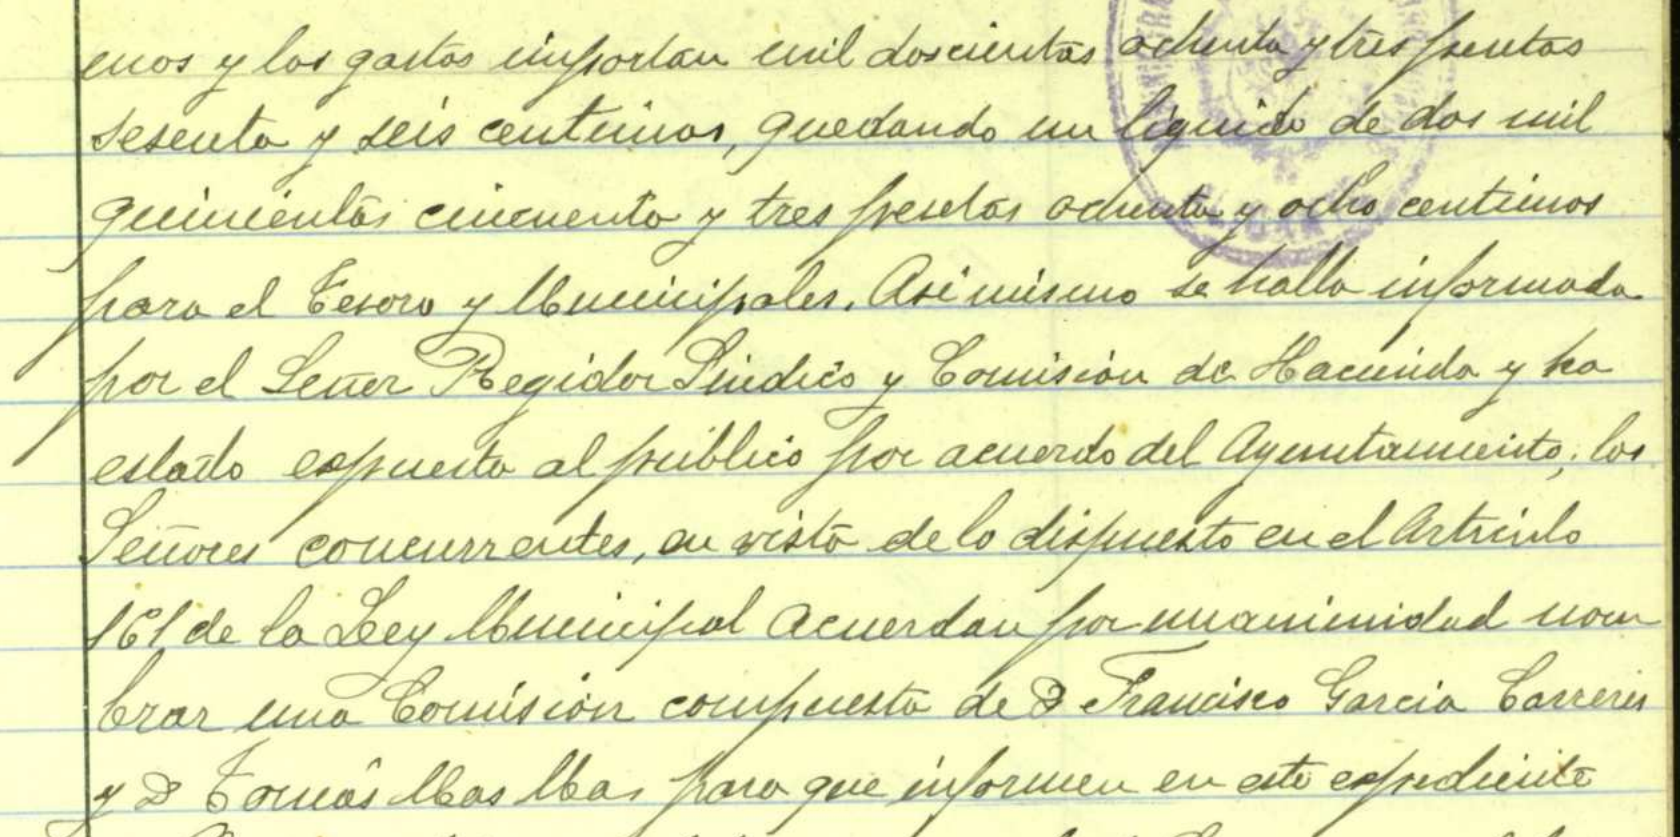 enos y los gastos importan mil doscientas ochenta y tres pesetas
sesenta y seis centimos, quedando un liquido de dos mil
quinientas cincuenta y tres pesetas ochenta y ocho centimos
para el Tesoro y Municipales. Asi mismo se halla informada
por el Señor Regidor Sindico y Comisión de Hacienda y ha
estado expuesta al público por acuerdo del Ayuntamiento; los
Señores concurrentes, en vista de lo dispuesto en el Articulo
161 de la Ley Municipal acuerdan por unanimidad nom
brar una Comisión compuesta de D Francisco Garcia Carreres
y D Tomás Mas Mas para que informen en este expediente